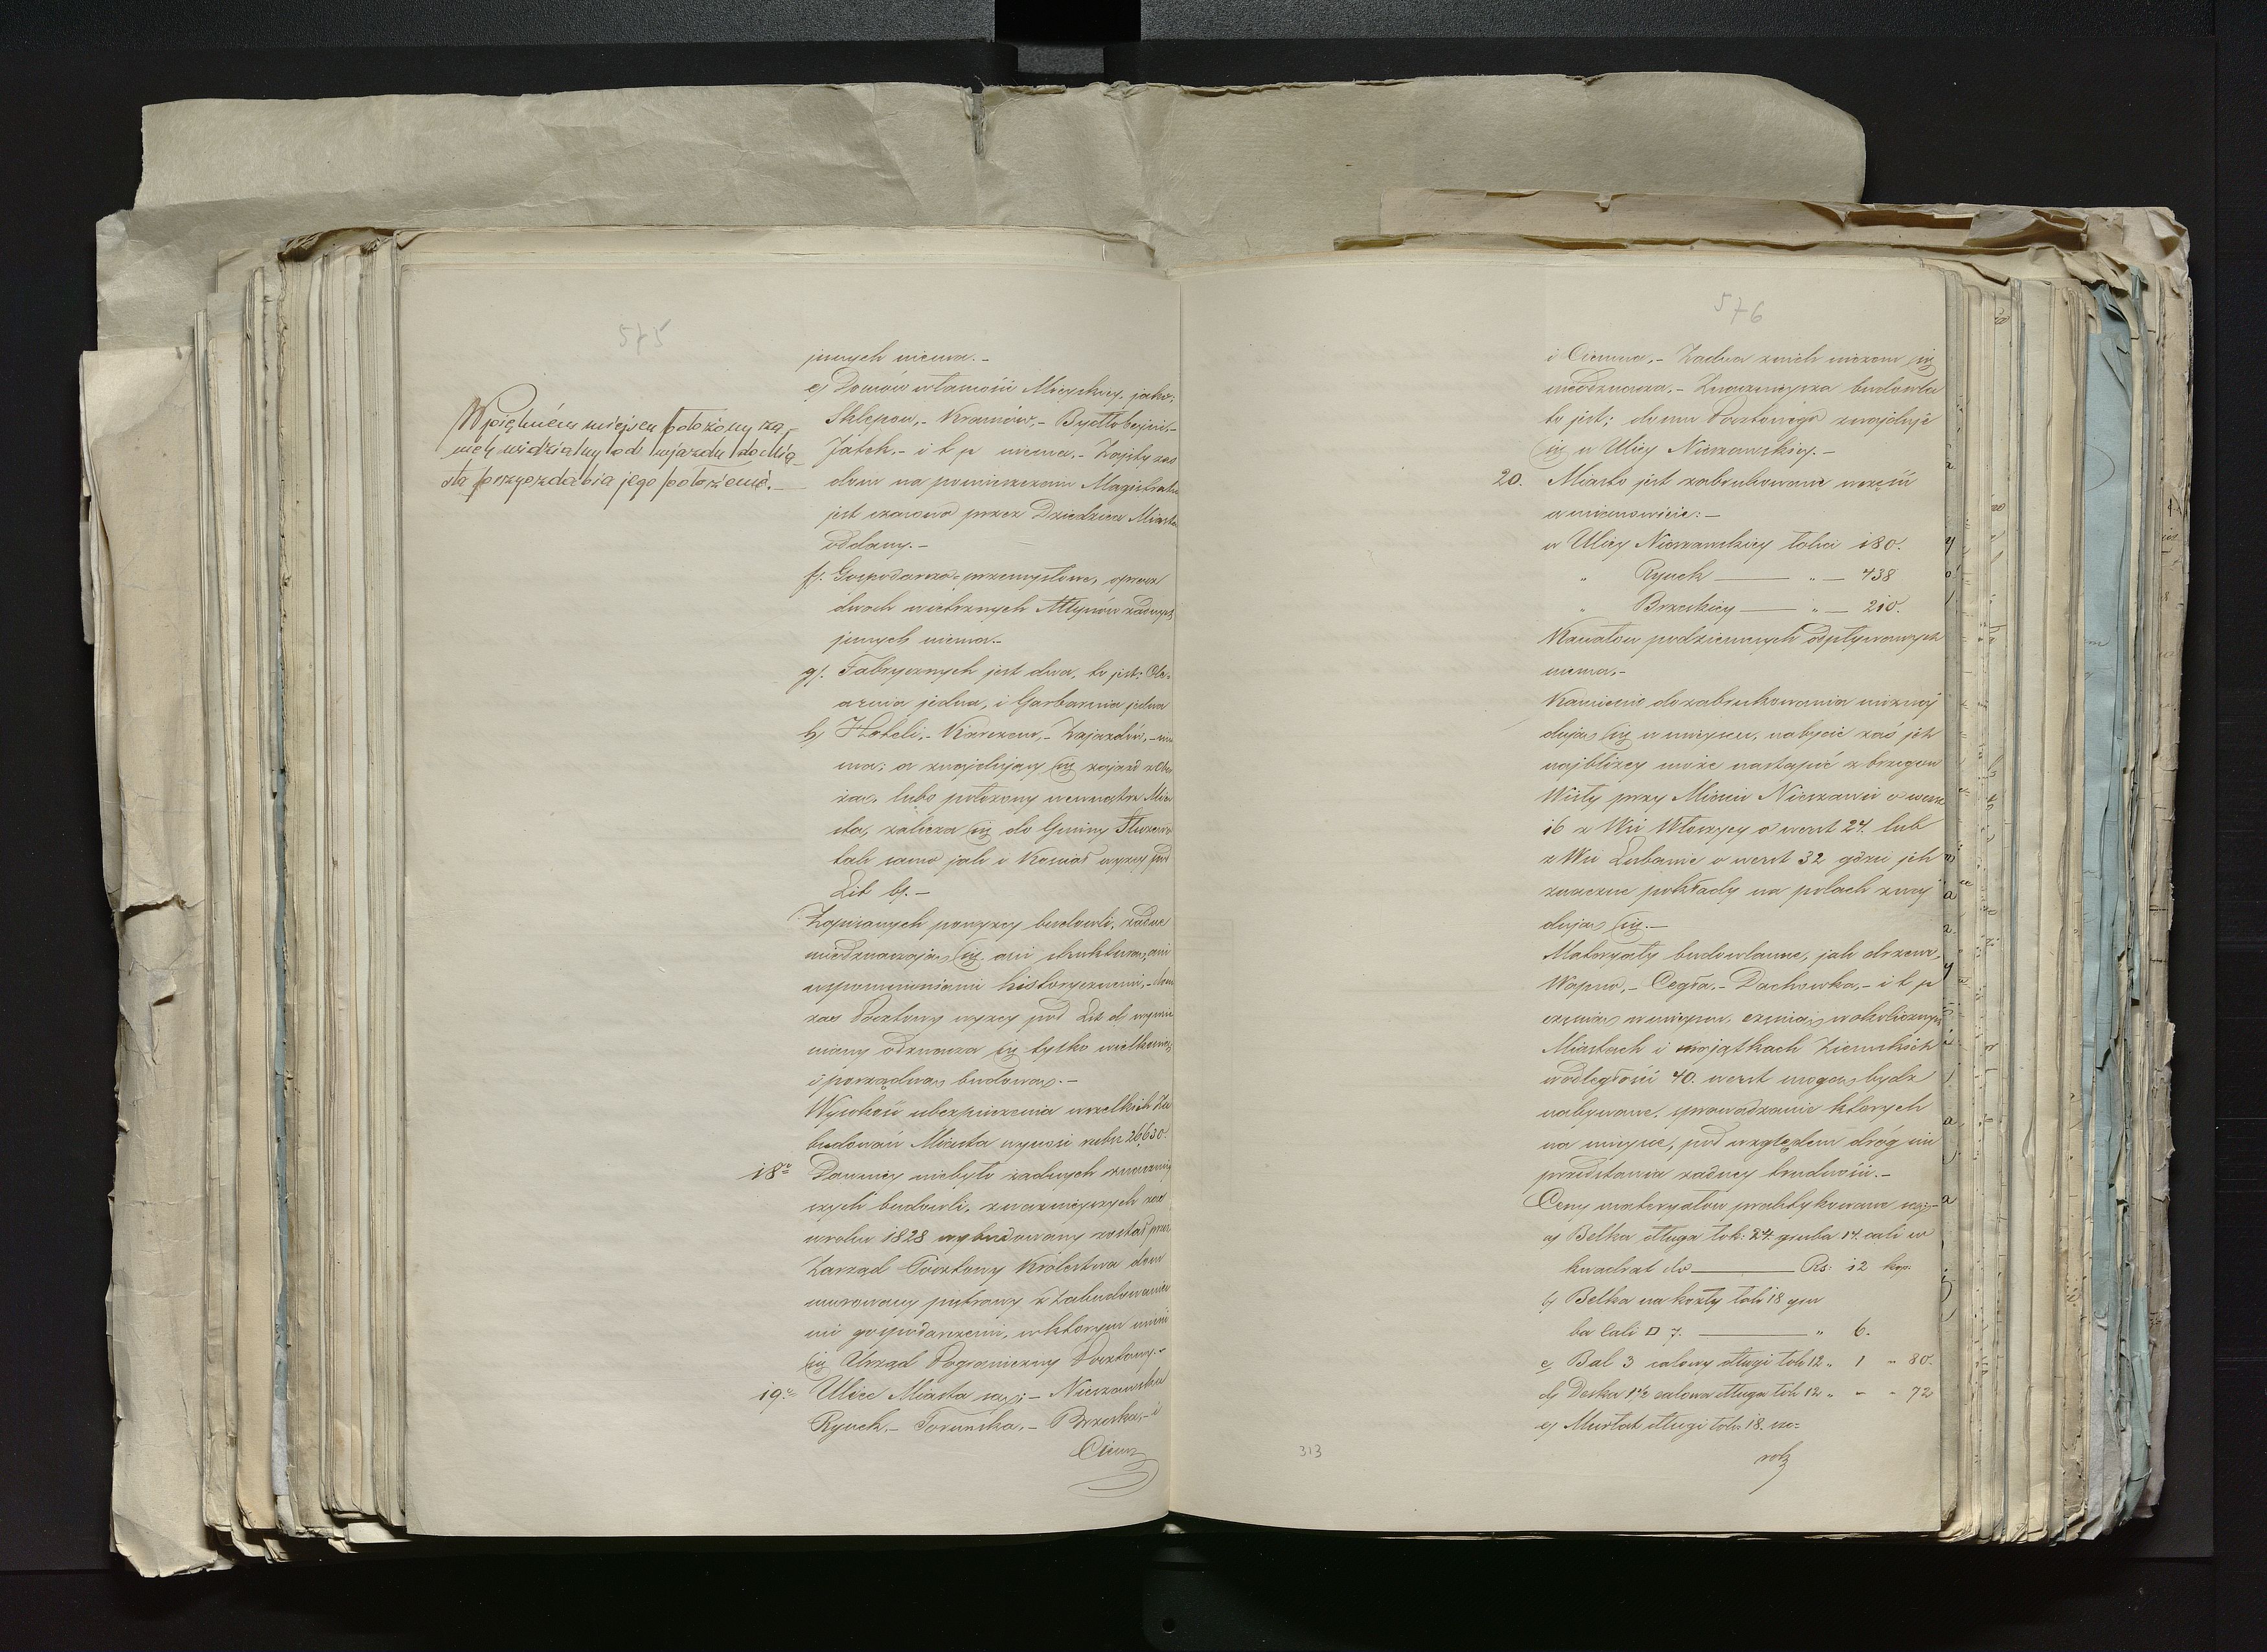 575
W pięknem miejscu położony za-
mek widzialny od wjazdu do Mia-
sta przyozdabia jego położenie.-
jnnych niema.-
e) Domów własności Mieyskiey, jako:
Sklepow,- Kramów,- Bydłobojni-
Jatek,- i t p niema.- Zajęty zaś
dom na pomieszczenie Magistratu
jest czasowo przez Dziedzica Miasta
oddany.-
f). Gospodarczo-przemysłowe, oprocz
dwoch wietrznych Młynów żadnych
jnnych niema.-
g). Fabrycznych jest dwa, to jest: Ole-
arnia jedna, i Garbarnia jedna
h) Hoteli,- Karczem,- Zajazdów,- nie
ma; a znajdujący się zajazd
lubo położony wewnątrz Mia
sta, zalicza się do Gminy Służewo
tak samo jak i Koscioł wyzey pod
Lit b).-
Z opisanych powyzey budowli, żadne
nieodznaczają się ani strukturą, ani
wspomnieniami historycznemi,- dom
zas Pocztowy wyzey pod Lit d) wymie
niony odznacza się tylko wielkością
i porządną budową.-
Wysokość ubezpieczenia wszelkich Za
budowań Miasta wynosi rubsr 26,630.
18e Dawniey niebyło żadnych znaczniey
szych budowli, znaczniejszych zaś
w roku 1828 wybudowany został przez
Zarząd Pocztowy Królestwa dom
murowany piętrowy z Zabudowania
mi gospodarczemi, w ktorym mieści
się Urząd Pograniczny Pocztowy.-
19e Ulice Miasta są:- Nieszawska
Rynek,- Toruńska,- Brzeska,- i
Ciem
576
i Ciemna.- Żadna z nich niczem się
nieodznacza.- Znaczniejsza budowla
to jest; domu Pocztowego znajduje
się w Ulicy Nieszawskiey.-
20. Miasto jest zabrukowane w części
a mianowicie:-
w Ulicy Nieszawskiey łokci 180.
" Rynek " 438
" Brzeskiey " 210.
Kanałow podziemnych odpływowych
niema.-
Kamienie do zabrukowania nieznaj
dują się w miejscu, nabycie zaś jch
najbliżey może nastąpić z brzegow
Wisły przy Mieście Nieszawie o werst
16 z Wsi o werst 27. lub
z Wsi Lubanie o werst 32 gdzie jch
znaczne pokłady na polach znaj
dują się.-
Materyały budowlanne, jak drzewo,
Wapno,- Cegła.- Dachowka,- i t p
częscią w miejscu, częścią w okolicznych
Miastach i majątkach Ziemskich
w odległości 40. werst mogą bydz
nabywane, sprowadzanie ktorych
na miejsce, pod względem dróg nie
przedstawia żadney trudności.-
Ceny materyałów praktykowane są:-
a) Belka długa łok: 24. gruba 14. cali w
kwadrat do Rs: 12 kop.
b) Belka na kozły łok 18 gru
ba Cali □ 7. " 6.
c) Bal 3 calowy długi łok 12 " 1 " 80.
d) Deska 1½ calowa długa łok 12 " - " 72
e) Murłat długi łok 18. sze-
roki
313